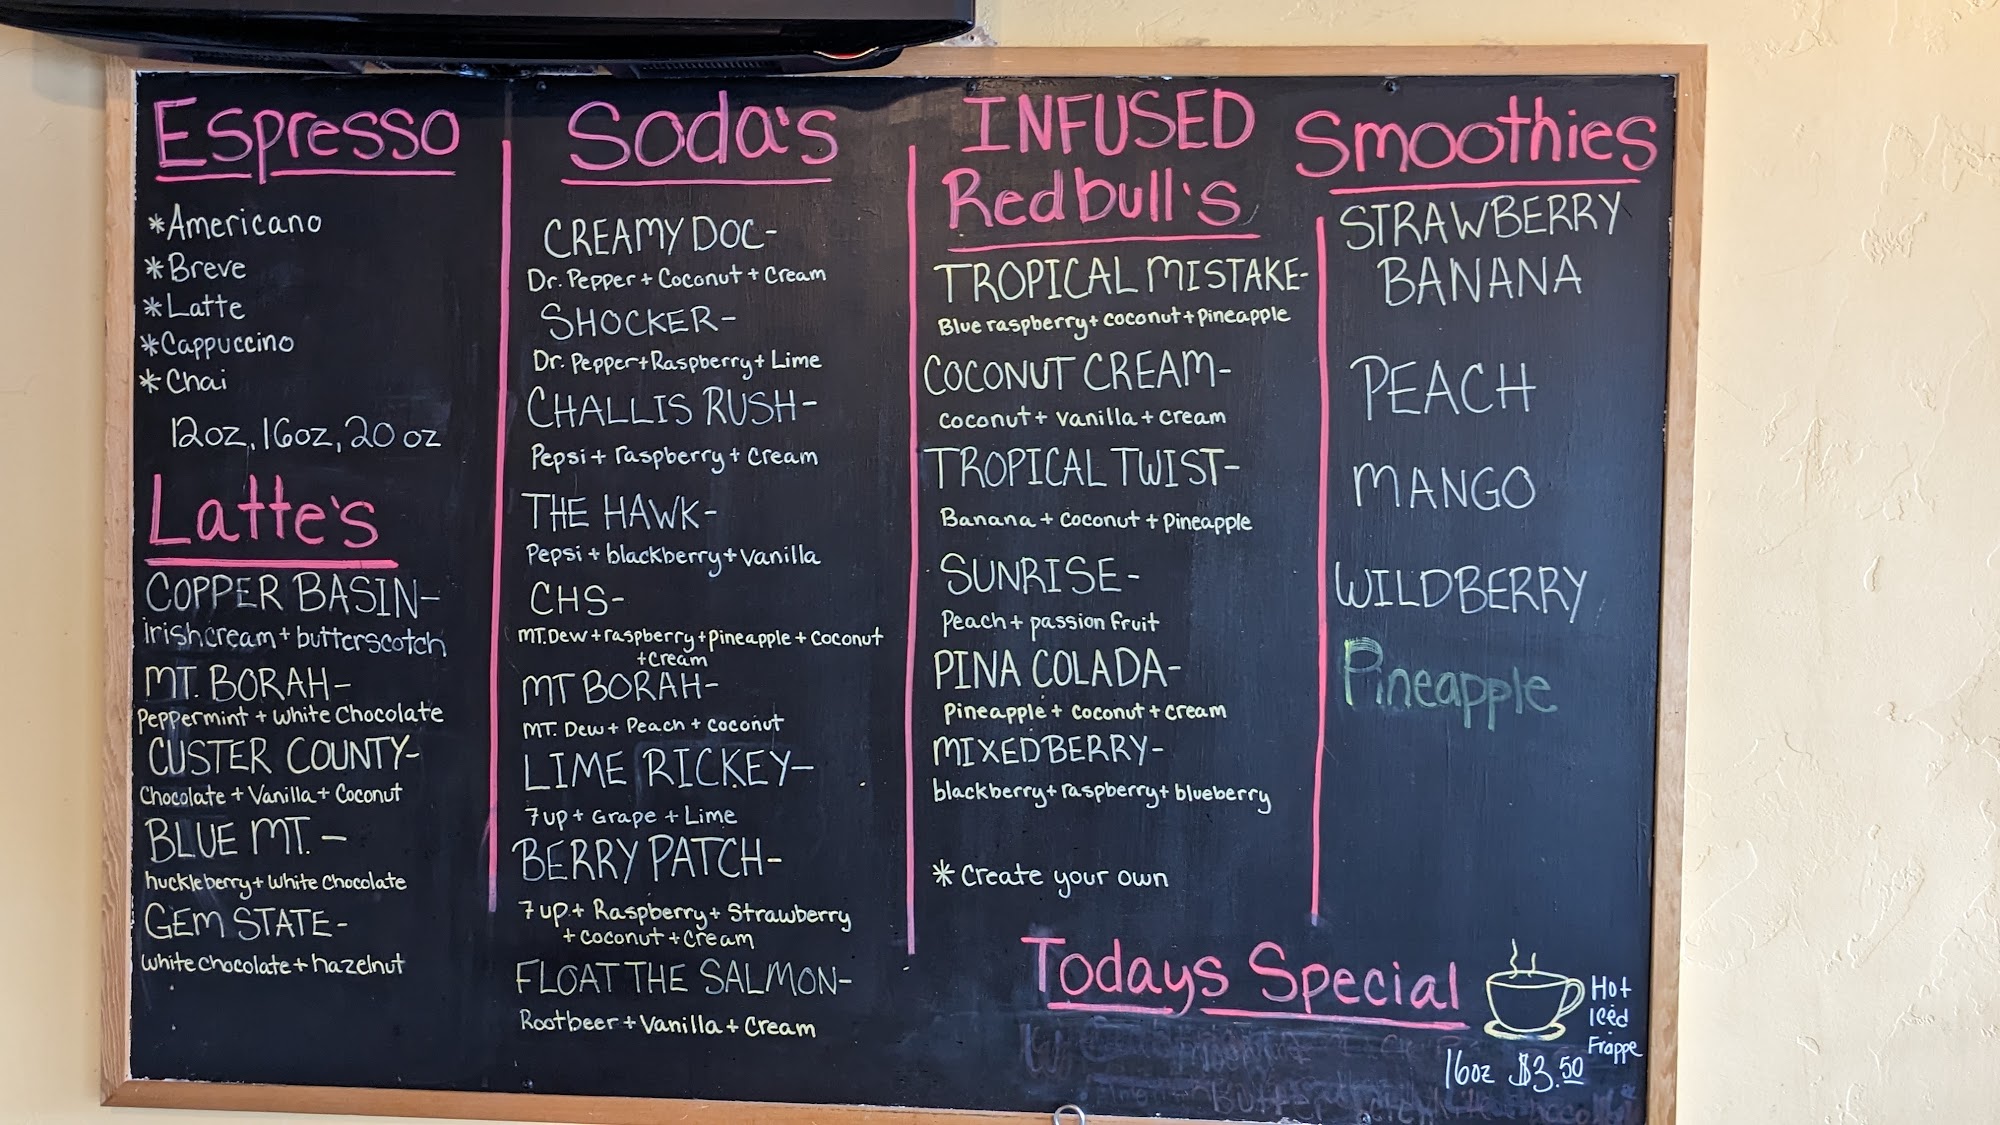 Espresso
*Americano
*Breve
*Latte
*Cappuccino
*Chai
12oz, 16oz, 20 oz
Latte's
COPPER BASIN-
irishcream + butterscotch
MT. BORAH-
Peppermint + White Chocolate
CUSTER COUNTY-
Chocolate + Vanilla + Coconut
BLUE MT. -
huckleberry + White Chocolate
GEM STATE-
White chocolate + hazelnut
Soda's
CREAMY DOC-
Dr. Pepper + Coconut + Cream
SHOCKER-
Dr. Pepper + Raspberry + Lime
CHALLIS RUSH-
Pepsi + raspberry + Cream
THE HAWK-
Pepsi + blackberry + Vanilla
CHS-
MT. Dew + raspberry + pineapple + coconut
+ Cream
MT BORAH-
MT. Dew + Peach + coconut
LIME RICKEY-
7up + Grape + Lime
BERRY PATCH-
7 up + Raspberry + Strawberry
+ coconut + cream
FLOAT THE SALMON-
Rootbeer + Vanilla + Cream
INFUSED
Redbull's
TROPICAL MISTAKE-
Blue raspberry + coconut + pineapple
COCONUT CREAM-
coconut + vanilla + cream
TROPICAL TWIST-
Banana + coconut + pineapple
SUNRISE-
Peach + passion fruit
PINA COLADA-
Pineapple + coconut + cream
MIXEDBERRY-
blackberry + raspberry + blueberry
* Create your own
Smoothies
STRAWBERRY
BANANA
PEACH
MANGO
WILDBERRY
Pineapple
Todays Special
Hot
Iced
Frappe
16oz $3.50